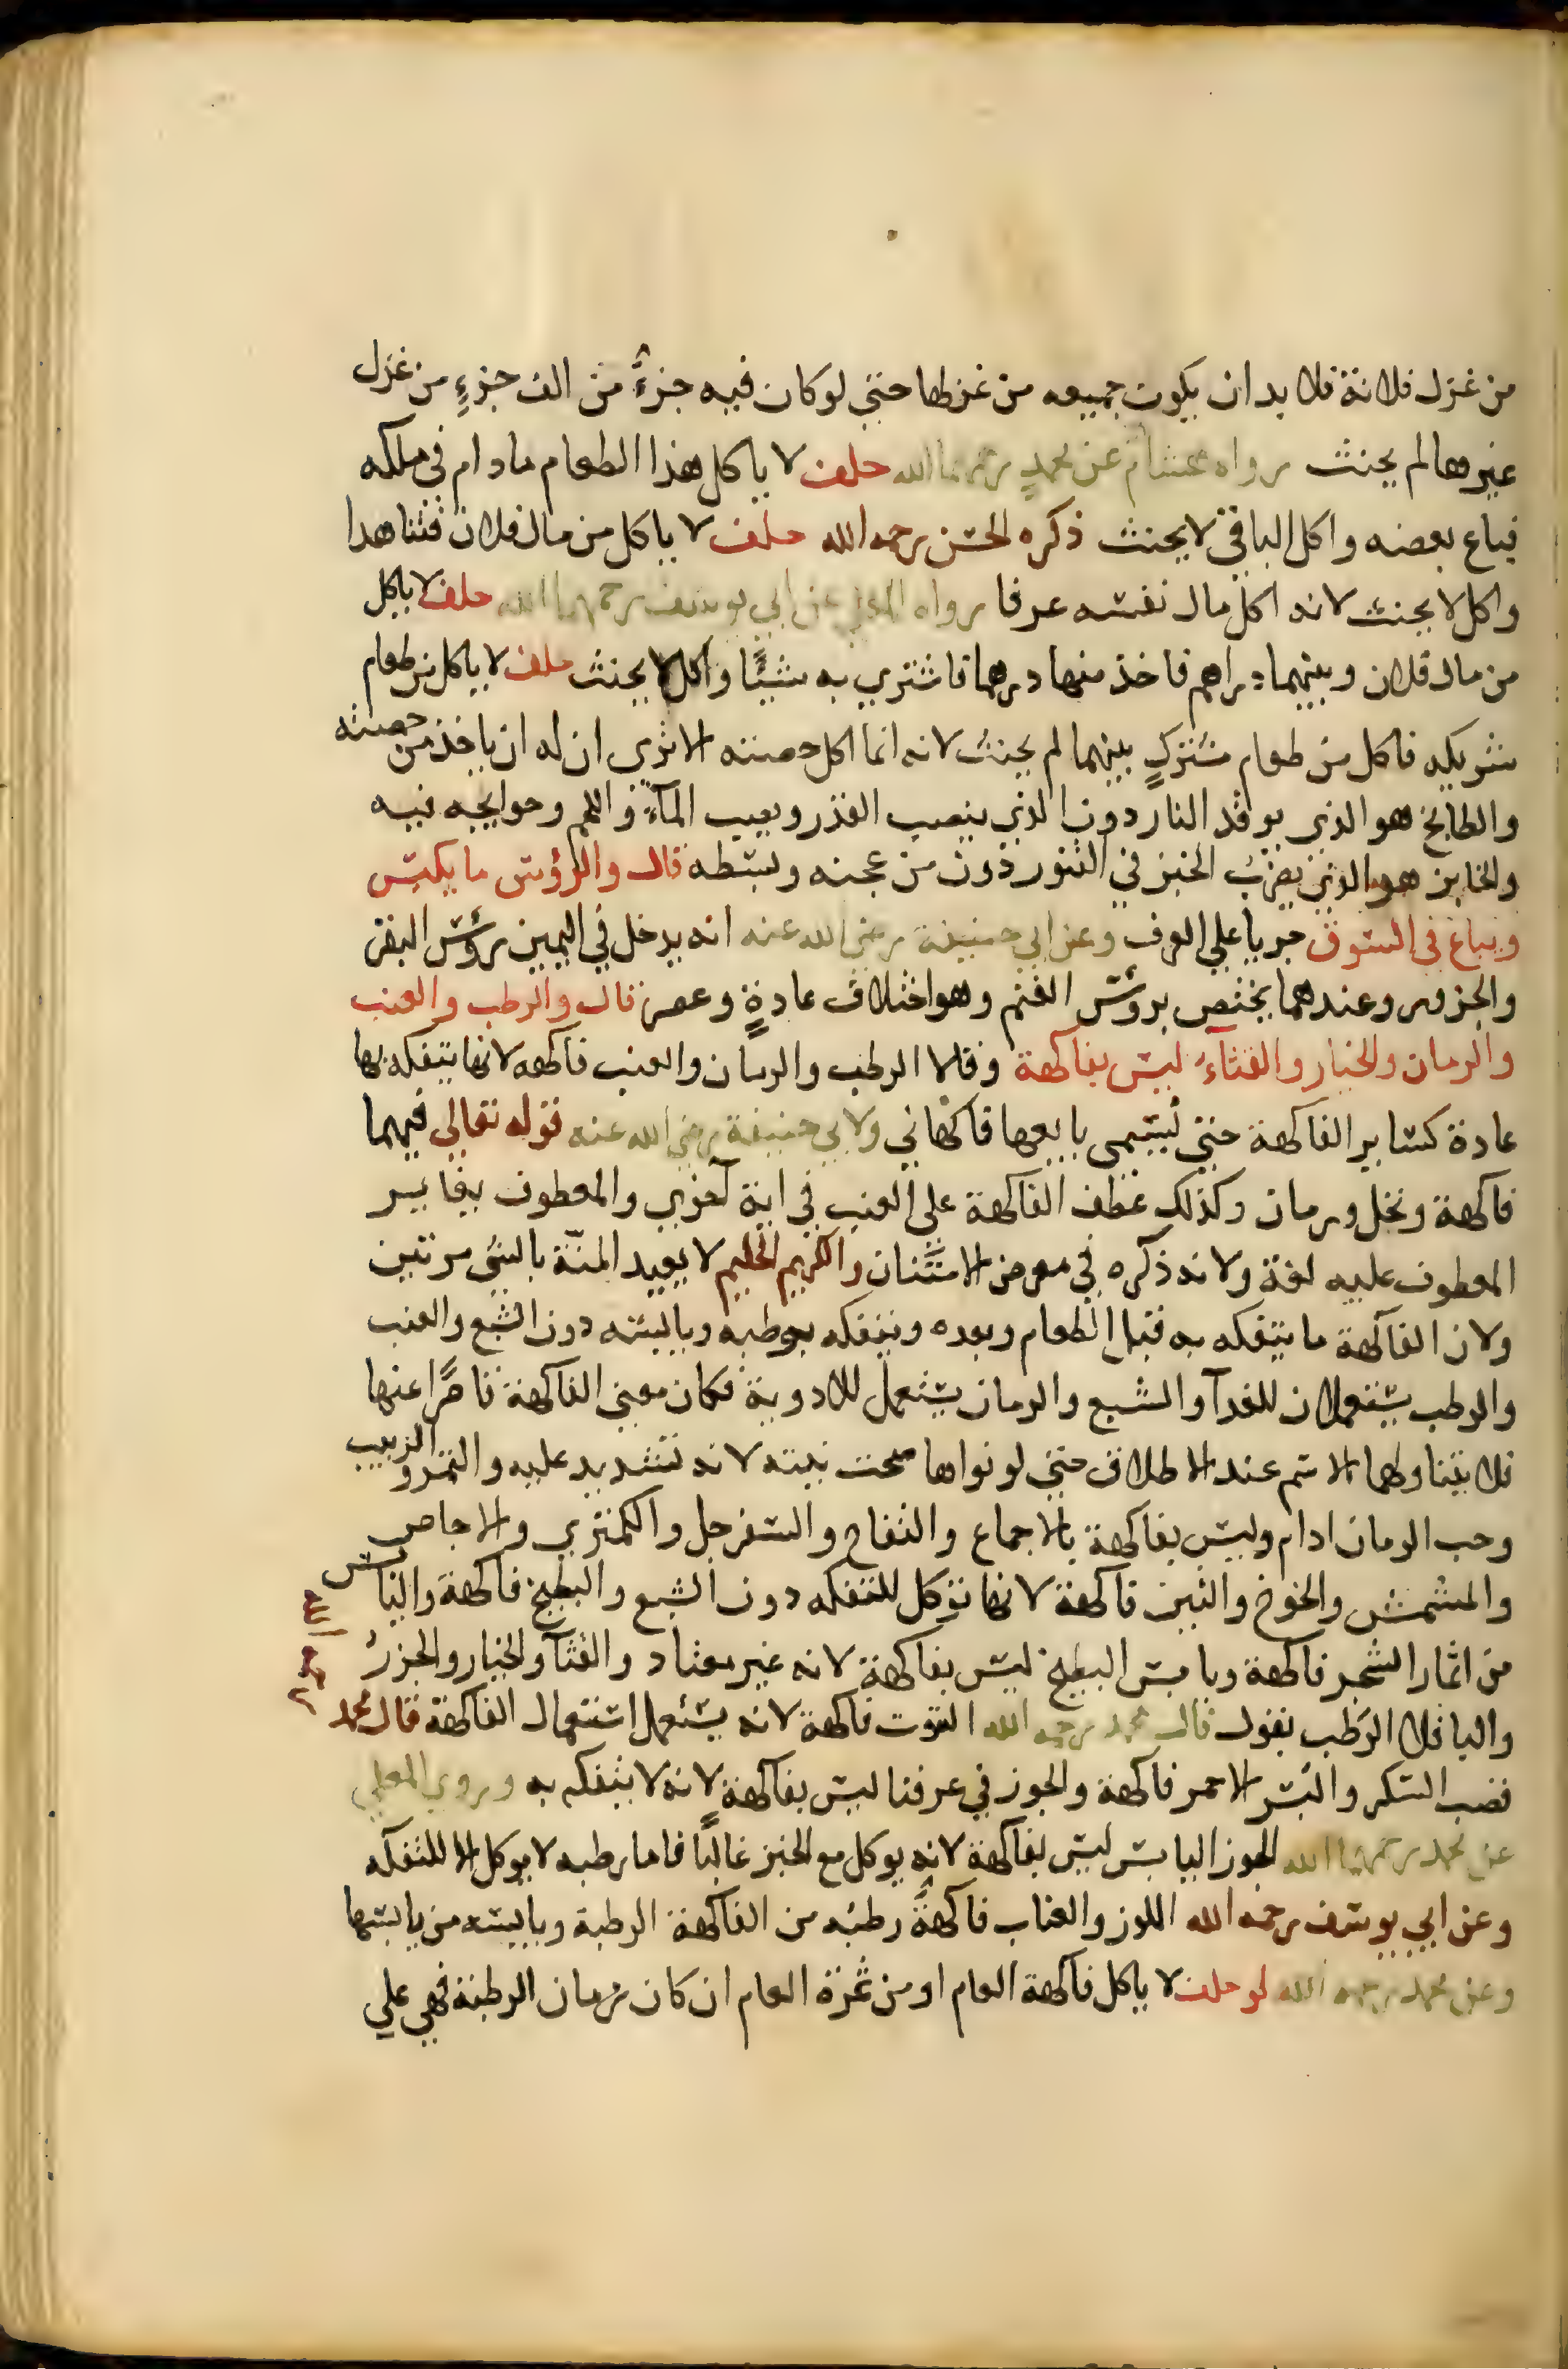 من غزل فلانة فلا بد ان يكون جميعه من غزلها حتى لو كان فيه جزءٌ من الف جزءٍ من غزل
غيرها لم يحنث رواه هشام عن محمدٍ رحمهما الله حلف لا ياكل هذا الطعام مادام في ملكه
فباع بعضه واكل الباقي لا يحنث ذكره الحسن رحمه الله حلف لا ياكل من مال فلان فتناهدا
واكل لا يحنث لانه اكل مال نفسه عرفا رواه المعلى عن ابي يوسف رحمهما الله حلف لا ياكل
من مال فلان وبينهما دراهم فاخذ منها درهما فاشترى به شيئًا واكل لا يحنث حلف لا ياكل من طعام
شريكه فاكل من طعام مشتركٍ بينهما لم يحنث لانه انما اكل حصته الا ترى ان له ان ياخذ من حصته
والطابخ هو الذي يوقد النار دون الذي ينصب القدر ويصب المآء واللحم وحوايجه فيه
والخابز هو الذي يضرب الخبز في التنور دون من عجنه وبسطه قال والرؤس ما يكبس
ويباع في السوق جريا على العرف وعن ابي حنيفة رضي الله عنه انه يدخل في اليمين رؤس البقر
والجزور وعندهما يختص برؤس الغنم وهو اختلاف عادةٍ وعصرٍ قال والرطب والعنب
والرمان والخيار والقثآء ليس بفاكهة وقالا الرطب والرمان والعنب فاكهه لانها يتفكه بها
عادة كساير الفاكهة حتى يسمى بايعها فاكهاني ولابي حنيفة رضي الله عنه قوله تعالى فيهما
فاكهة ونخل ورمان وكذلك عطف الفاكهة على العنب في اية اخرى والمعطوف يغاير
المعطوف عليه لغة ولانه ذكره في معرض الامتنان والكريم الحليم لا يعيد المنّة بالشئ مرتين
ولان الفاكهة ما يتفكه به قبل الطعام وبعده ويتفكه برطبه ويابسه دون الشبع والعنب
والرطب يستعملان للغدآ والشبع والرمان يستعمل للادوية فكان معنى الفاكهة قاصرًا عنها
فلا يتناولهما الاسم عند الاطلاق حتى لو نواها صحت نيته لانه تشديد عليه والتمر والزبيب
وحب الرمان ادام وليس بفاكهة بالاجماع والتفاح والسفرجل والكمثرى والاجاص
والمشمش والخوخ والتين فاكهة لانها تؤكل للتفكه دون الشبع والبطيخ فاكهة واليابس
من اثمار الشجر فاكهة ويابس البطيخ ليس بفاكهة لانه غير معتاد والقثآ والخيار والجزر
والباقلا الرطب بقول قال محمد رحمه الله التوت فاكهة لانه يستعمل استعمال الفاكهة قال محمد
قصب السكر والبسر الاحمر فاكهة والجوز في عرفنا ليس بفاكهة لانه لا يتفكه به وروى المعلى
عن محمد رحمهما الله الجوز اليابس ليس بفاكهة لانه يوكل مع الخبز غالبًا فاما رطبه لا يوكل الا للتفكه
وعن ابي يوسف رحمه الله اللوز والعناب فاكهةٌ رطبه من الفاكهة الرطبة ويابسه من يابسها
وعن محمد رحمه الله لو حلف لا ياكل فاكهة العام او من ثمرة العام ان كان زمان الرطبة فهي على